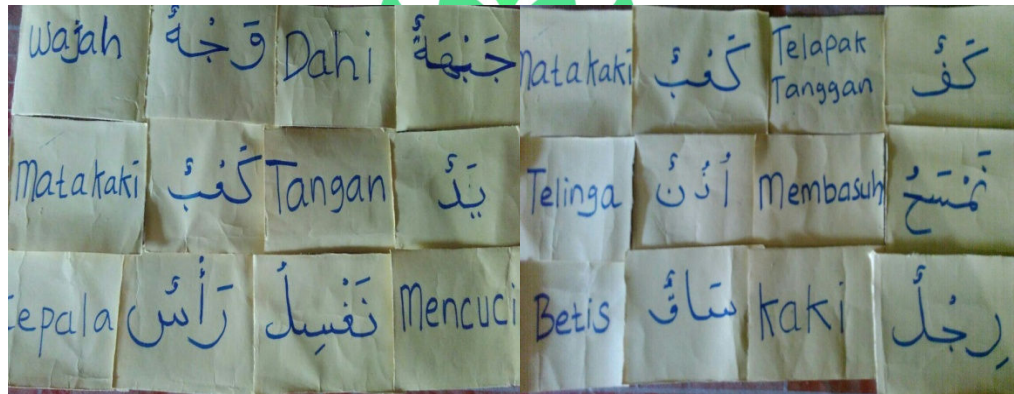 Wajah
وَجْهٌ
Dahi
جَبْهَةٌ
Matakaki
كَعْبٌ
Tangan
يَدٌ
epala
رَأْسٌ
نَغْسِلُ
Mencuci
Matakaki
كَعْبٌ
Telapak
Tanggan
كَفٌّ
Telinga
أُذُنٌ
Membasuh
نَمْسَحُ
Betis
سَاقٌ
kaki
رِجْلٌ